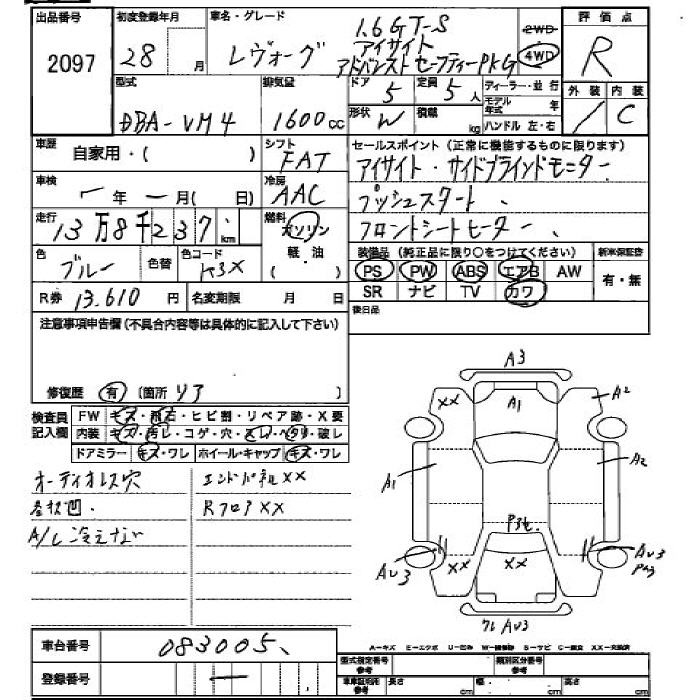 出品番号
2097
初度登録年月
28 年 月
車名・グレード
レヴォーグ
1.6GT-S
アイサイト
アドバンスト セーフティーPKG
2WD
4WD
評価点
R
型式
DBA-VM4
排気量
1600cc
ドア
5
定員
5人
ディーラー・並行
モデル年式 年
形状
W
積載
kg
ハンドル 左・右
外装
内装
C
車歴
自家用・( )
シフト
FAT
セールスポイント (正常に機能するものに限ります)
アイサイト・サイドブラインドモニター
プッシュスタート
フロントシートヒーター
車検
年 月( 日)
冷房
AAC
走行
13万8千237km
燃料
ガソリン
軽・油
色
ブルー
色替
色コード
K3X
装備品 (純正品に限り○をつけてください)
PS PW ABS エアB AW
SR ナビ TV カワ
新車保証書
有・無
R券 13.610円
名変期限 月 日
後日品
注意事項申告欄(不具合内容等は具体的に記入して下さい)
修復歴 有 (箇所 リア )
検査員記入欄
FW キズ・飛石・ヒビ割・リペア跡・X要
内装 キズ・汚レ・コゲ・穴・スレ・ヘタリ・破レ
ドアミラー キズ・ワレ ホイール・キャップ キズ・ワレ
オーディオレス穴
エンドパネルXX
RフロアXX
A/C 冷えない
A3
XX
A1
A2
A1
A2
P3
XX
XX
AU3
AU3
ワレ AU3
A-キズ E-エクボ U-凹ミ W-補修跡 S-サビ C-腐食 XX-交換済
車台番号
083005
登録番号
型式指定番号
参考
類別区分番号
参考
車車証明用
参考
長さ cm
幅 cm
高さ cm